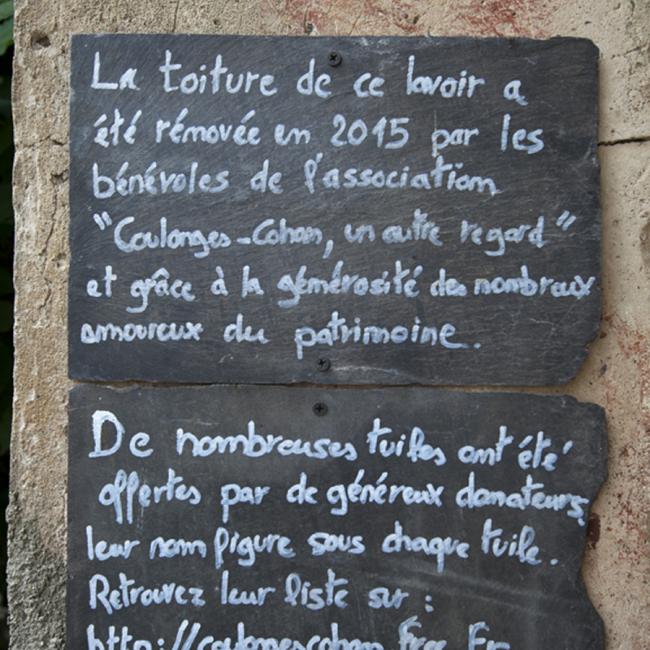 La toiture de ce lavoir a
été rénovée en 2015 par les
bénévoles de l'association
"Coulonges-Cohan, un autre regard"
et grâce à la générosité des nombreux
amoureux du patrimoine.
De nombreuses tuiles ont été
offertes par de généreux donateurs,
leur nom figure sous chaque tuile.
Retrouvez leur liste sur :
http://coulongescohan.free.fr